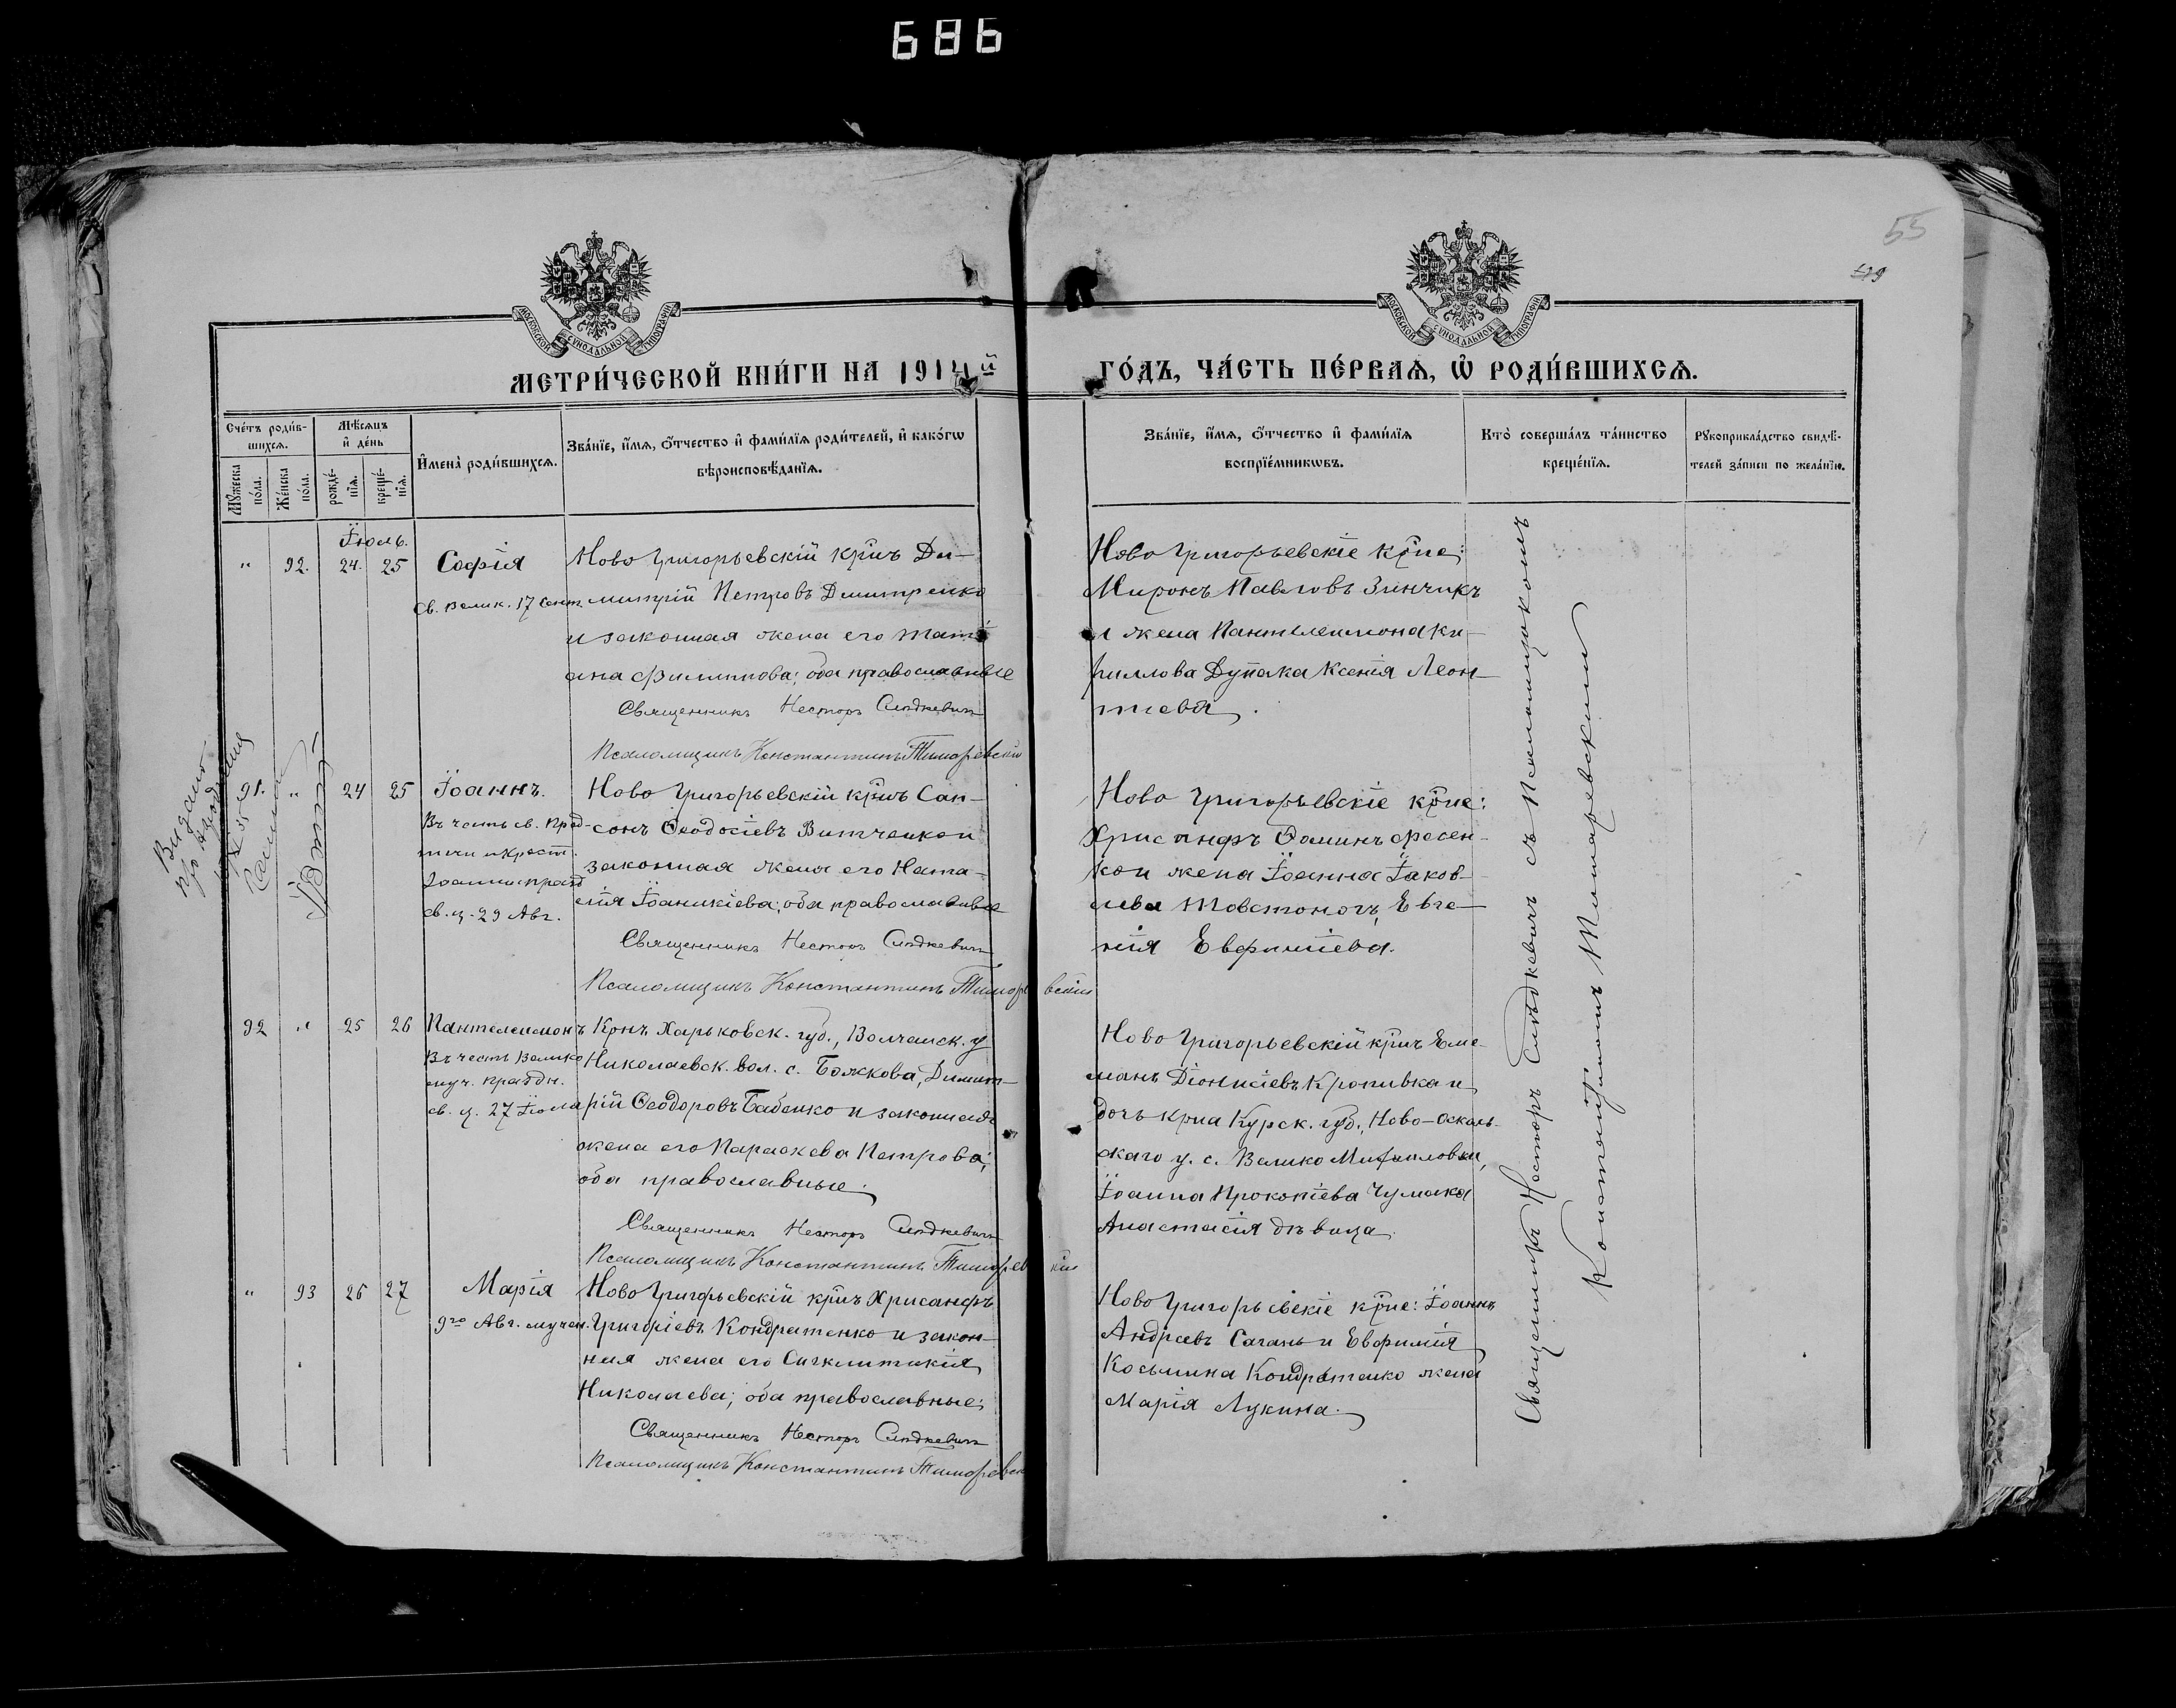 686
55
МОСКОВСКОЙ СѴНОДАЛЬНОЙ ТИПОГРАФІИ
МОСКОВСКОЙ СѴНОДАЛЬНОЙ ТИПОГРАФІИ
МЕТРИ́ЧЕСКОЙ КНИ́ГИ НА 1914й ГО́ДЪ, ЧА́СТЬ ПЕ́РВАѦ, Ѡ҆ РОДИ́ВШИХСѦ.
Сче́тъ роди́в-
шихсѧ.
Мꙋ́жеска по́ла.
Же́нска по́ла.
Мѣ́сѧцъ и҆ де́нь
рожде́-
нїѧ.
креще́-
нїѧ.
И҆мена̀ роди́вшихсѧ.
Зва́нїе, и҆́мѧ, ѻ҆́тчество и҆ фами́лїѧ роди́телей, и҆ како́гѡ
вѣроисповѣ́данїѧ.
Зва́нїе, и҆́мѧ, ѻ҆́тчество и҆ фами́лїѧ
воспрїе́мникѡвъ.
Кто̀ соверша́лъ та́инство
креще́нїѧ.
Рꙋкоприкла́дство свидѣ́-
телей за́писи по жела́нїю.
Іюль.
" 92. 24. 25 Софія
св. велик. 17 Сент.
НовоГригорьевскій крнъ Ди-
митрій Петровъ Дмитренко
и законная жена его Тати-
ана Филиппова; оба православные
Священникъ Несторъ Слѣдкевичъ
Псаломщикъ Константинъ
НовоГригорьевскіе крне:
Миронъ Павловъ Зинчикъ
и жена Пантелеимона Ки-
риллова Дупака Ксенія Леон-
тиева.
91. " 24 25 Іоаннъ.
Въ честь св. Пред-
течи и Крест.
Іоанна празд
св. ц. 29 Авг.
НовоГригорьевскій крнъ Сам-
сонъ Ѳеодосіевъ Витченко и
законная жена его Ната-
лія Іоаникіева; оба православные
Священникъ Несторъ Слѣдкевичъ
Псаломщикъ Константинъ
Ново Григорьевскіе крне:
Хрисанфъ Ѳоминъ Фесен-
ко и жена Іоанна Іаков-
лева Товстоногъ, Евге-
нія Евфиміева.
Видано
92 " 25 26 Пантелеимонъ
Въ честь Велико
муч. праздн.
св. ц. 27 Іюля
Крнъ Харьковск. губ., Волчанск. у
Николаевск. вол. с. Божкова, Димит-
рій Ѳеодоровъ Бабенко и законная
жена его Параскева Петрова;
оба православные.
Священникъ Несторъ Слѣдкевичъ
Псаломщикъ Константинъ
НовоГригорьевскій крнъ Еме-
лианъ Діонисіевъ Кропивка и
дочь крна Курск. губ., Ново-Осколь-
скаго у. с. Велико Михайловки,
Іоанна Прокопіева Чумака
Анастасія дѣвица.
" 93 26 27 Марія
9го Авг. мучен.
НовоГригорьевскій крнъ Хрисанфъ
Григоріевъ Кондратенко и закон-
ная жена его Сигклитикія
Николаева; оба православные;
Священникъ Несторъ Слѣдкевичъ
Псаломщикъ Константинъ
НовоГригорьевскіе крне: Іоаннъ
Андреевъ Сагань и Евфимія
Косьмина Кондратенко жена
Марія Лукина.
Священникъ Несторъ Слѣдкевичъ съ Псаломщикомъ
Константиномъ